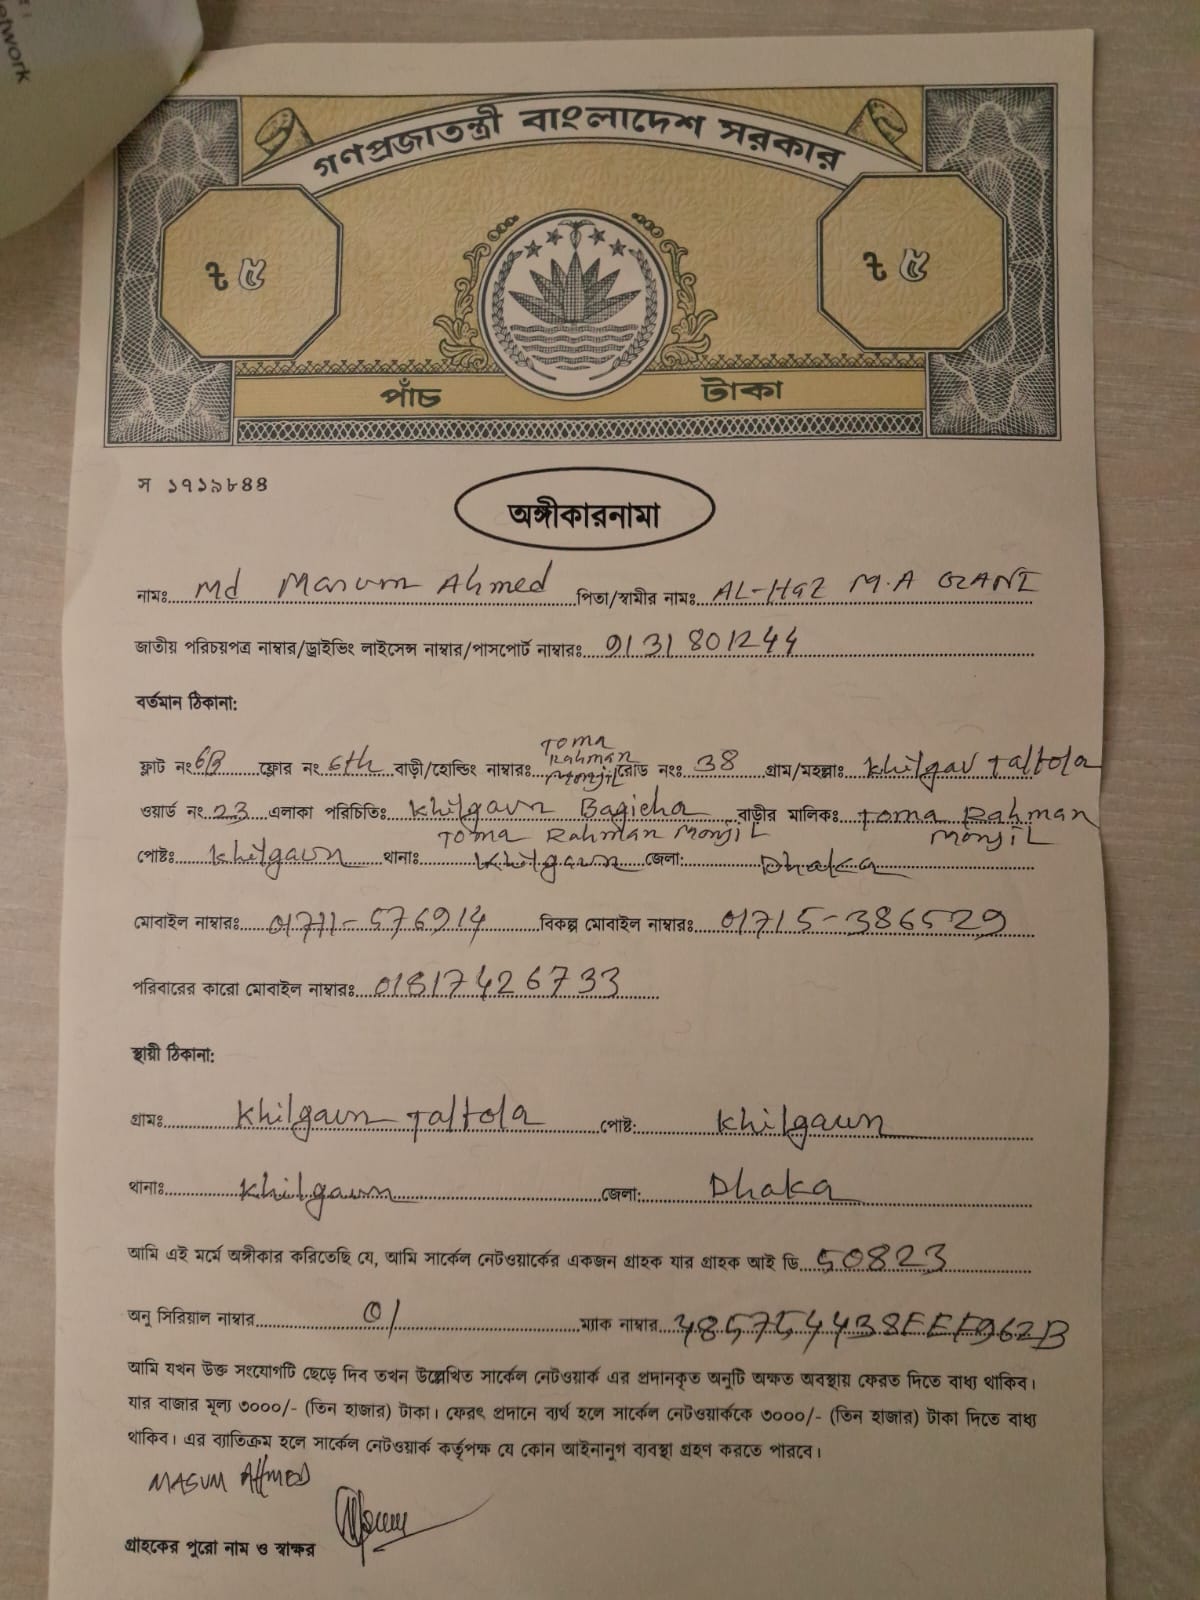 etwork
গণপ্রজাতন্ত্রী বাংলাদেশ সরকার
৳ ৫ ৳ ৫
পাঁচ টাকা
স ১৭১৯৮৪৪
অঙ্গীকারনামা
নামঃ Md Masum Ahmed পিতা/স্বামীর নামঃ AL-Haz M.A GANI
জাতীয় পরিচয়পত্র নাম্বার/ড্রাইভিং লাইসেন্স নাম্বার/পাসপোর্ট নাম্বারঃ 9131801244
বর্তমান ঠিকানা:
ফ্লাট নং 6B ফ্লোর নং 6th বাড়ী/হোল্ডিং নাম্বারঃ Toma Rahman Monjil রোড নংঃ 38 গ্রাম/মহল্লাঃ Khilgau Taltola
ওয়ার্ড নং 23 এলাকা পরিচিতিঃ Khilgaun Bagicha Toma Rahman Monjil বাড়ীর মালিকঃ Toma Rahman Monjil
পোষ্টঃ Khilgaun থানাঃ Khilgaun জেলা: Dhaka
মোবাইল নাম্বারঃ 01711-576914 বিকল্প মোবাইল নাম্বারঃ 01715-386529
পরিবারের কারো মোবাইল নাম্বারঃ 01817426733
স্থায়ী ঠিকানা:
গ্রামঃ Khilgaun Taltola পোষ্ট: Khilgaun
থানাঃ Khilgaun জেলা: Dhaka
আমি এই মর্মে অঙ্গীকার করিতেছি যে, আমি সার্কেল নেটওয়ার্কের একজন গ্রাহক যার গ্রাহক আই ডি 50823
অনু সিরিয়াল নাম্বার 01 ম্যাক নাম্বার
আমি যখন উক্ত সংযোগটি ছেড়ে দিব তখন উল্লেখিত সার্কেল নেটওয়ার্ক এর প্রদানকৃত অনুটি অক্ষত অবস্থায় ফেরত দিতে বাধ্য থাকিব।
যার বাজার মূল্য ৩০০০/- (তিন হাজার) টাকা। ফেরৎ প্রদানে ব্যর্থ হলে সার্কেল নেটওয়ার্ককে ৩০০০/- (তিন হাজার) টাকা দিতে বাধ্য
থাকিব। এর ব্যাতিক্রম হলে সার্কেল নেটওয়ার্ক কর্তৃপক্ষ যে কোন আইনানুগ ব্যবস্থা গ্রহণ করতে পারবে।
MASUM AHMED
গ্রাহকের পুরো নাম ও স্বাক্ষর